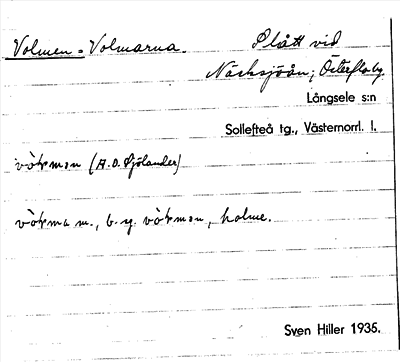 Volmen = Volmarna. Slått vid
Näcksjöån, Österfloby.
Långsele s:n
Sollefteå tg., Västernorrl. l.
(A.O. Sjölander)
m., b. y. holme.
Sven Hiller 1935.